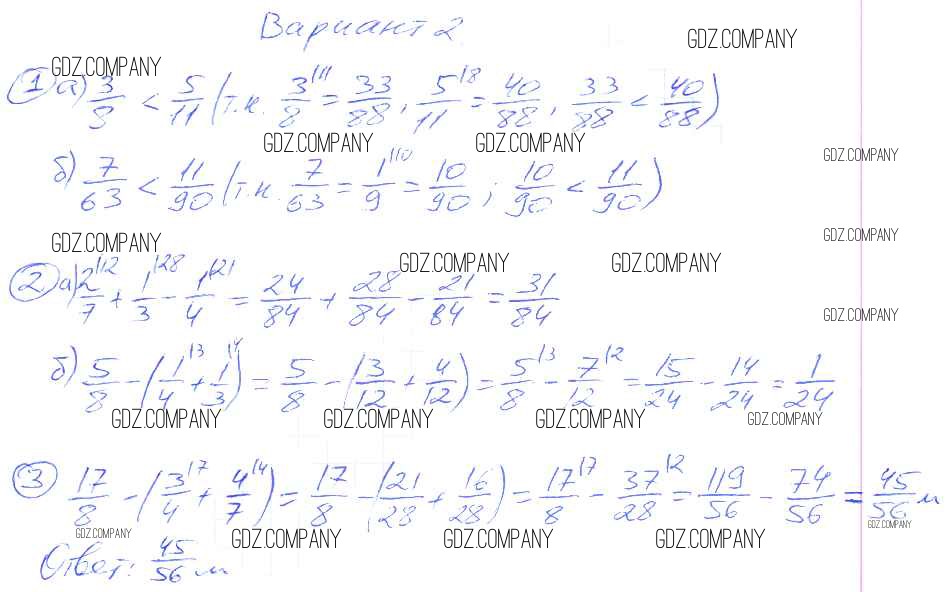 Вариант 2
GDZ.COMPANY
GDZ.COMPANY
① а) 3/8 < 5/11 (т.к. 3/8 |11 = 33/88, 5/11 |8 = 40/88, 33/88 < 40/88)
GDZ.COMPANY GDZ.COMPANY
GDZ.COMPANY
б) 7/63 < 11/90 (т.к. 7/63 = 1/9 |10 = 10/90; 10/90 < 11/90)
GDZ.COMPANY
GDZ.COMPANY
GDZ.COMPANY GDZ.COMPANY
② а) 2/7 |12 + 1/3 |28 - 1/4 |21 = 24/84 + 28/84 - 21/84 = 31/84
GDZ.COMPANY
б) 5/8 - (1/4 |3 + 1/3 |4) = 5/8 - (3/12 + 4/12) = 5/8 |3 - 7/12 |2 = 15/24 - 14/24 = 1/24
GDZ.COMPANY GDZ.COMPANY GDZ.COMPANY GDZ.COMPANY
③ 17/8 - (3/4 |7 + 4/7 |4) = 17/8 - (21/28 + 16/28) = 17/8 |7 - 37/28 |2 = 119/56 - 74/56 = 45/56 м
GDZ.COMPANY GDZ.COMPANY GDZ.COMPANY GDZ.COMPANY GDZ.COMPANY
Ответ: 45/56 м